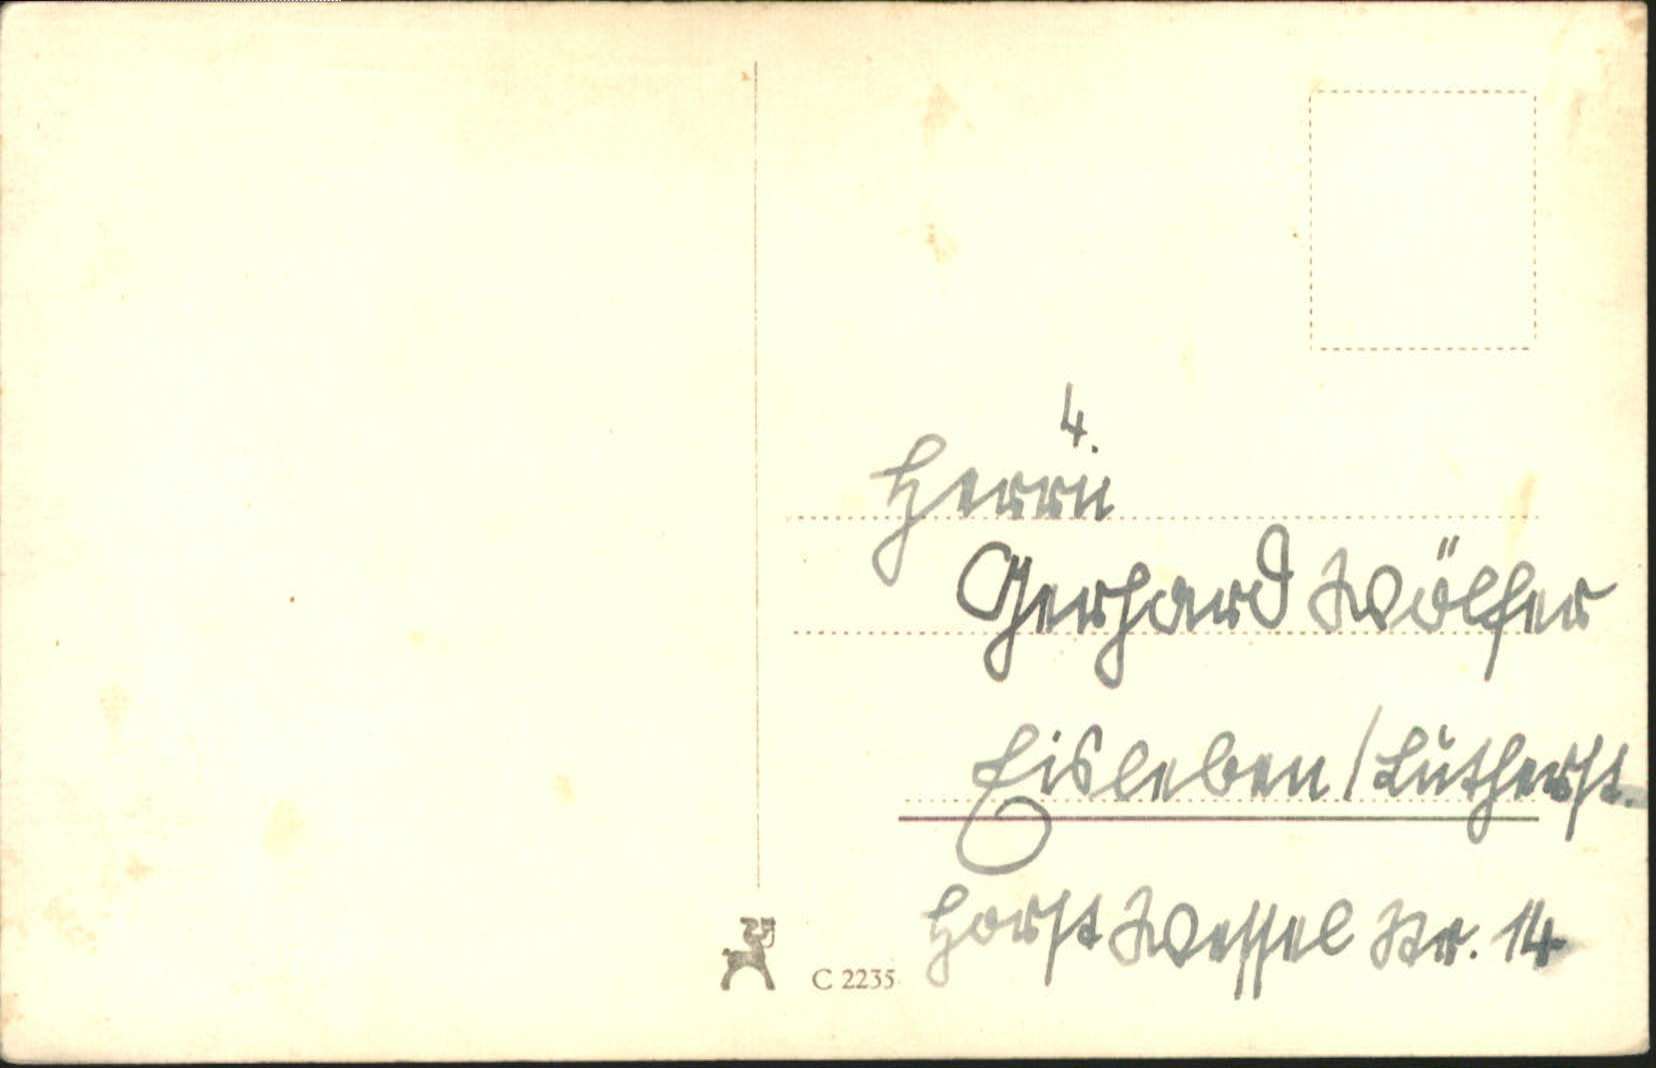 4.
Herrn
Gerhard Wölfer
Eisleben / Lutherst.
Horst Wessel Str. 14
C 2235